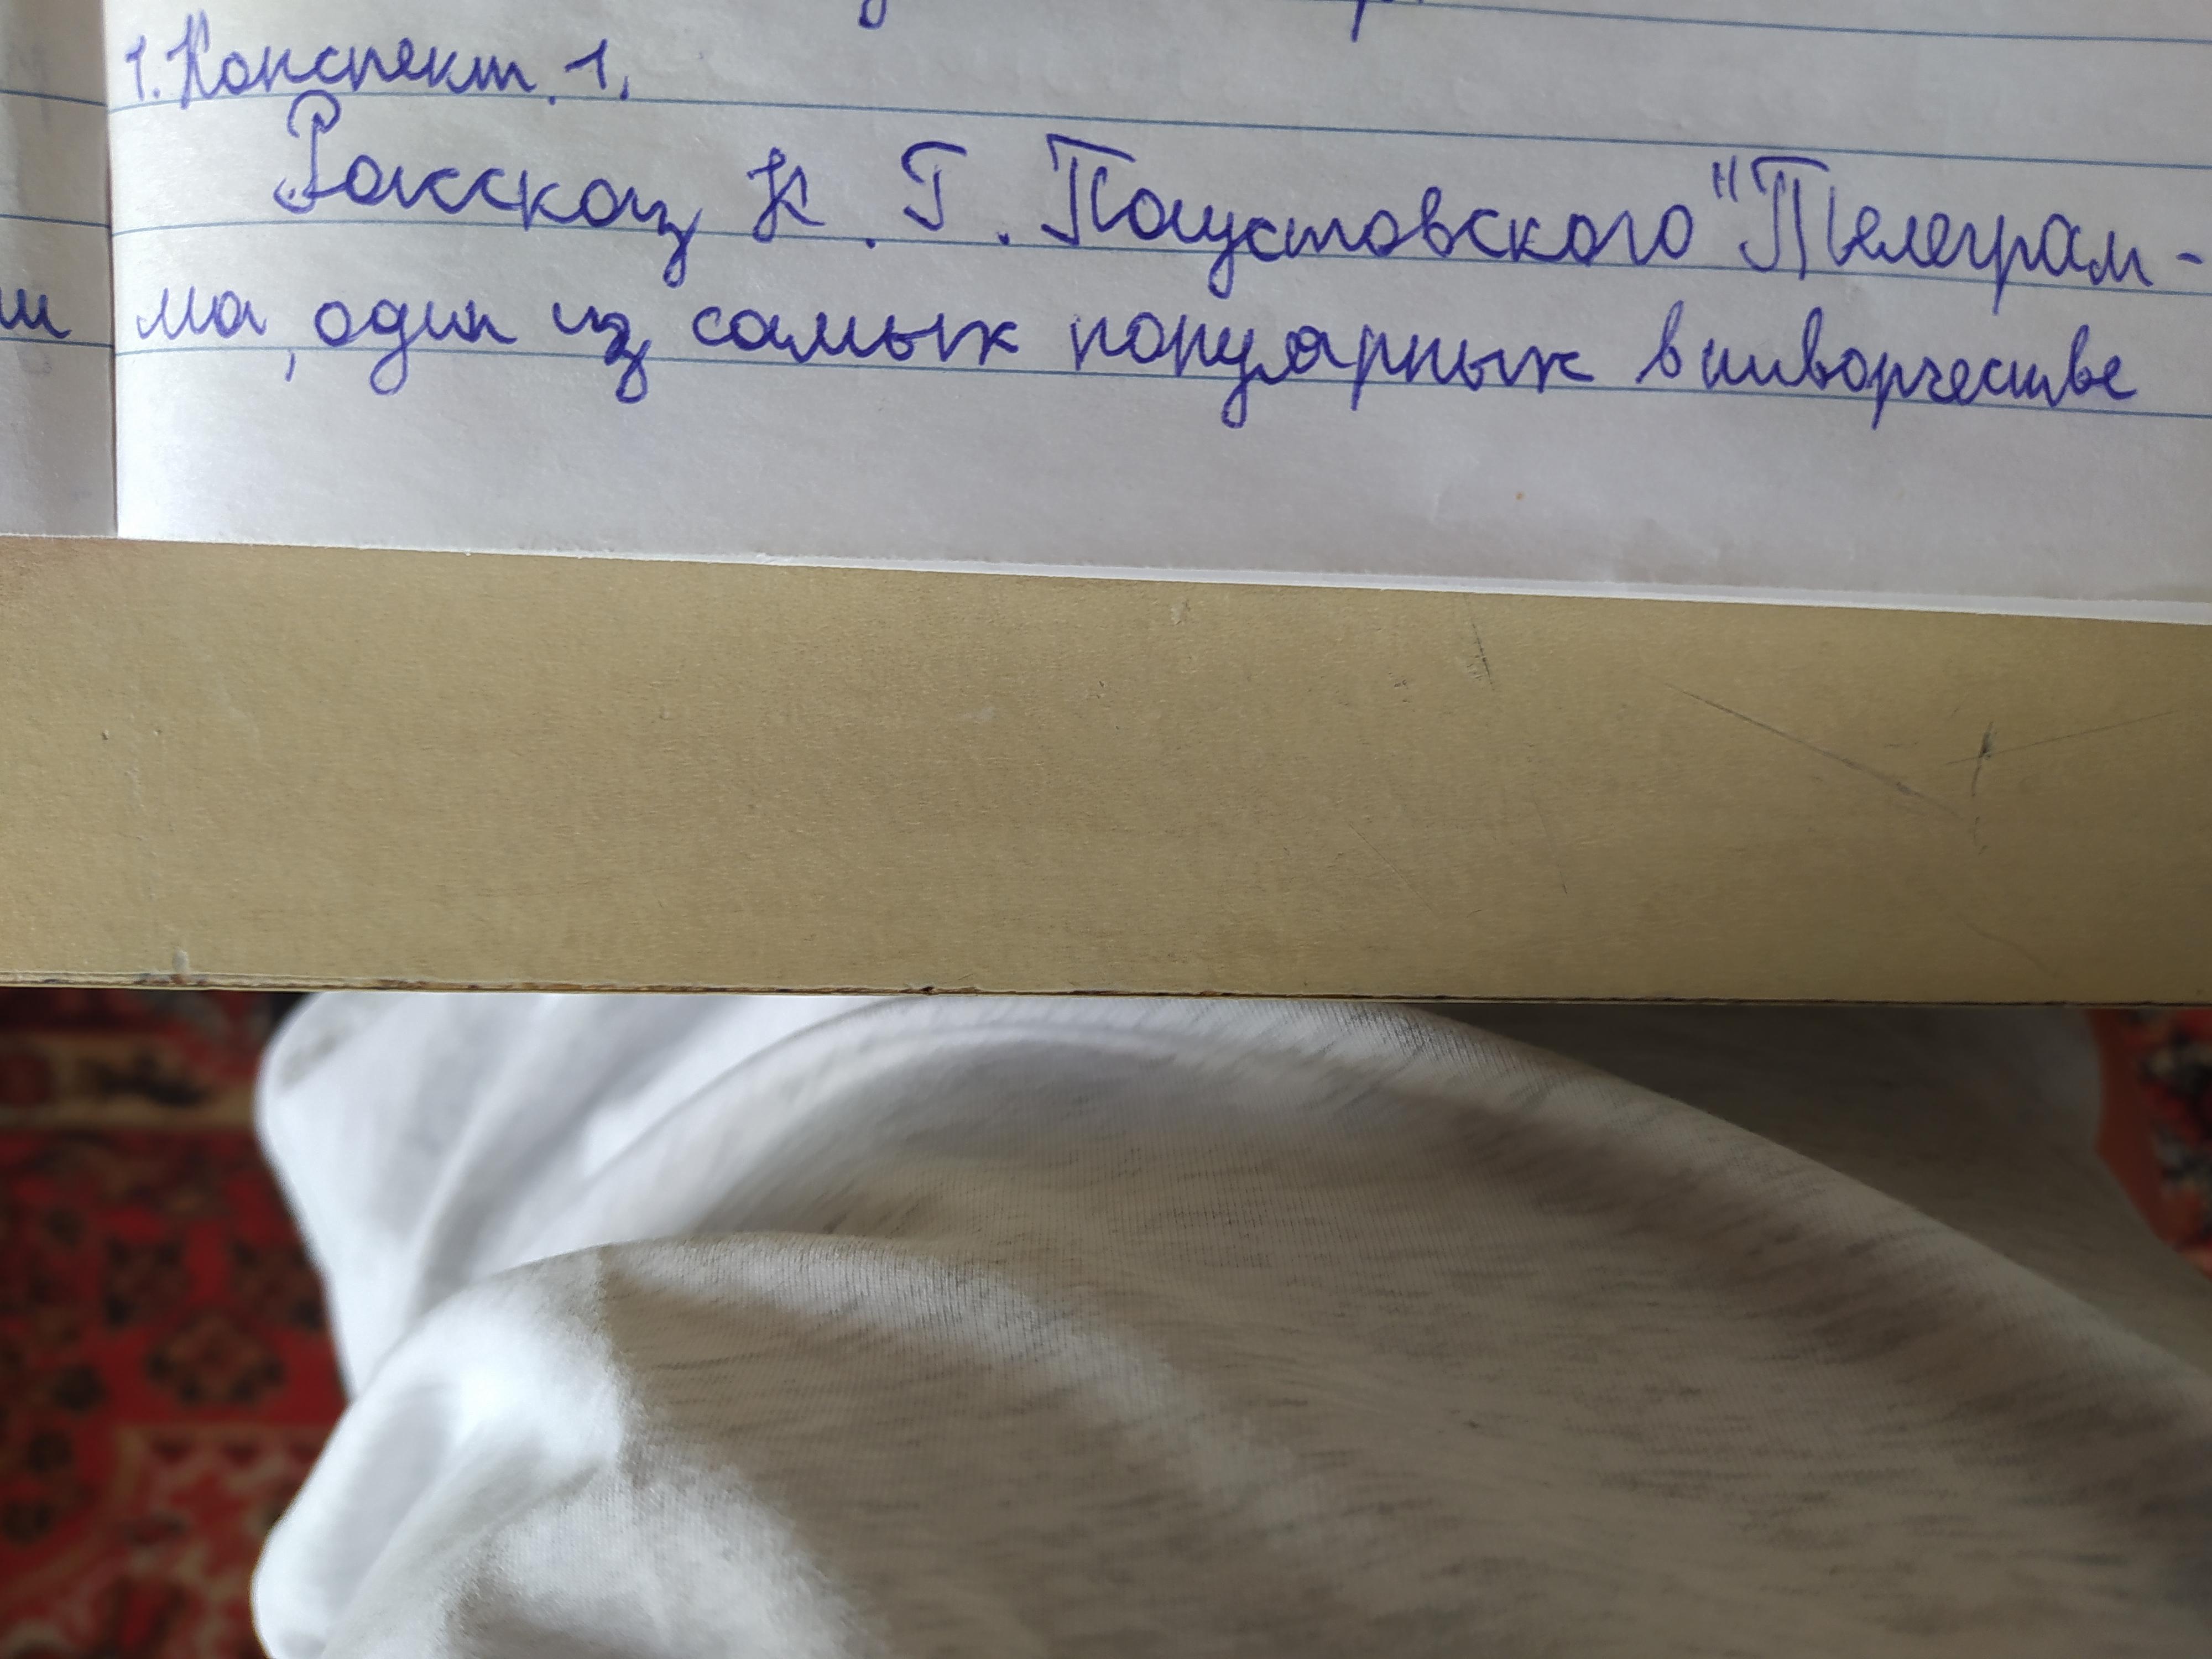 1. Конспект. 1.
Рассказ К. Г. Паустовского "Телеграм-
ма, один из самых популярных в творчестве